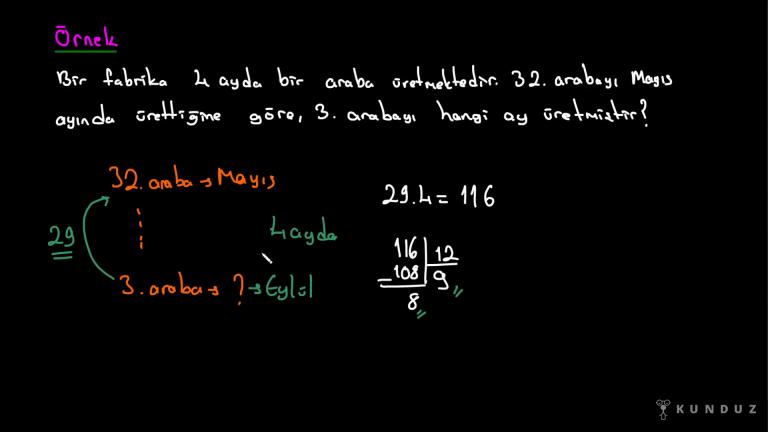 Örnek
Bir fabrika 4 ayda bir araba üretmektedir. 32. arabayı Mayıs
ayında ürettiğine göre, 3. arabayı hangi ay üretmiştir?
32. araba → Mayıs
29
3. araba → ? → Eylül
4 ayda
29.4 = 116
116 | 12
108 | 9
8
KUNDUZ